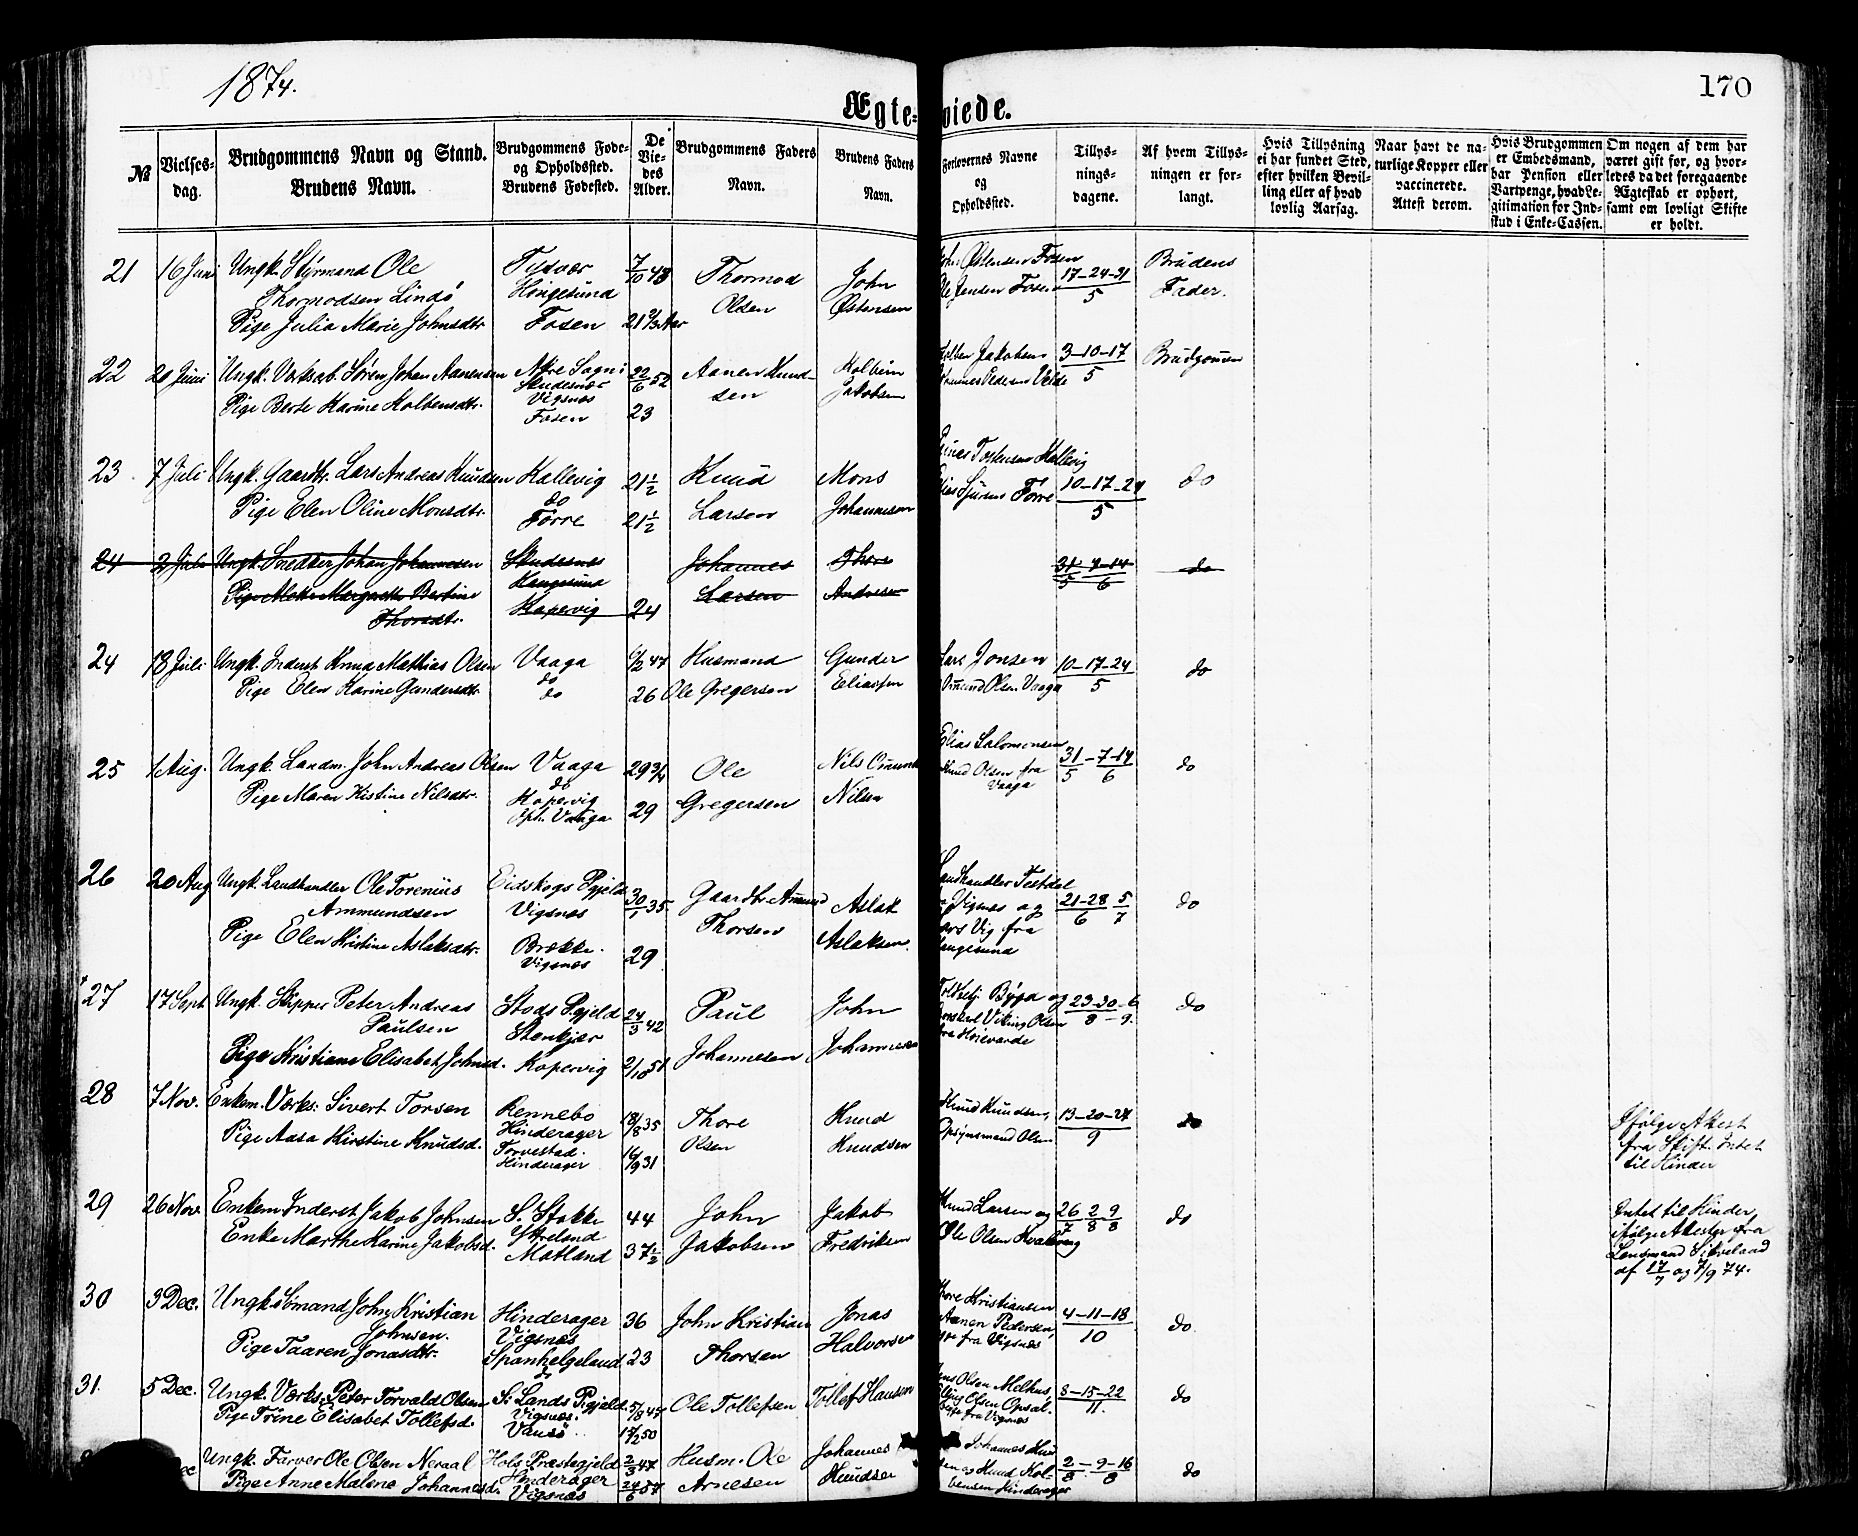 1874.
170
Ægte-viede.
№
Vielses-dag.
Brudgommens Navn og Stand.
Brudens Navn.
Brudgommens Føde-
og Opholdssted.
Brudens Fødested.
De Vie-des Alder.
Brudgommens Faders
Navn.
Brudens Faders
Navn.
Forlovernes Navne
og
Opholdssted.
Tillys-
nings-
dagene.
Af hvem Tillys-
ningen er for-
langt.
Hvis Tillysning
ei har fundet Sted,
efter hvilken Bevil-
ling eller af hvad
lovlig Aarsag.
Naar havt de na-
turlige Kopper eller
vaccinerede.
Attest derom.
Hvis Brudgommen
er Embedsmand,
har Pension eller
Vartpenge, hvad Le-
gitimation for Ind-
skud i Enke-Cassen.
Om nogen af dem har
været gift før, og hvor-
ledes da det foregaaende
Ægteskab er ophørt,
samt om lovligt Skifte
er holdt.
21 16 Juni Ungk. Styrmand Ole
Thormodsen Lindö
Pige Julia Marie Johnsdtr.
Haugesund
Fosen
7/10 48
21 2/3 Aar
Thormod
Olsen
John
Østensen
Østensen Fosen
Jensen Fosen
17-24-31
5
Brudens
Fader.
22 20 Juni Ungk. Søren Johan Aanensen
Pige Berte Karine Kolbensdtr.
Skudesnæs
Vigsnæs
Fosen
22/6 52
23
Aanen Knud-
sen
Kolbein
Jakobsen
Jakobsen
3-10-17
5
Brudgommen
23 7 Juli Ungk. Gaardbr. Lars Andreas Knudsen
Pige Elen Oline Monsdtr.
Kallevig
do
Førre
21 1/2
21 1/2
Knud
Larsen
Mons
Johannesen
Tostensen Kallevig
Førre
10-17-24
5
do
24 2 Juli Ungk. Snedker Johan Johannesen
Pige Mette Margrethe Bertine
Thorsdtr.
Skudesnes
Haugesund
Kopervig
24
Johannes
Larsen
Thore
Andresen
31-7-14
5 6
do
24 18 Juli Ungk. Inderst Knud Mathias Olsen
Pige Elen Karine Gundersdtr.
Vaaga
do
do
26
Husmand
Ole Gregersen
Gunder
Eliassen
Lars Jonsen
Omund Olsen Vaaga
10-17-24
5
do
25 1 Aug. Ungk. Landm. John Andreas Olsen
Pige Maren Kistine Nilsdtr.
Vaaga
do
Kopervig
Oph. Vaaga
29 3/4
29
Ole
Gregersen
Nils Omund
Nilsen
Elias Salomonsen
Knud Olsen fra
Vaaga
31-7-14
5 6
do
26 20 Aug Ungk. Landhandler Ole Torenius
Ammundsen
Pige Elen Kristine Aslaksdtr.
Eidskogs Pgjeld
Vigsnæs
Brække
Vigsnæs
30/1 35
29
Gaardbr. Amund
Thorsen
Aslak
Aslaksen
Landhandler Testdal
Vigsnæs og
Vig fra
Haugesund
21-28 5
6 7
do
27 17 Sept Ungk. Skipper Peter Andreas
Paulsen
Pige Kristiane Elisabet Johnsd.
Stods Pgjeld
Stenkjær
Kopervig
24/3 42
2/10 51
Paul
Johannesen
John
Johannesen
Bygd og
Viking Olsen
fra Høievarde
23-30-6
8 - 9.
do
28 7 Nov. Enkem. Værks. Sivert Torsen
Pige Aasa Kirstine Knudsd.
Rennebo
Hinderager
Torvestad.
Hinderager
18/8 35
16/9 31
Thore
Olsen
Knud
Knudsen
Knud Knudsen,
Opsynsmand Olsen
13-20-27
9
do
Ifølge Attest
fra Skift. Intet
til Hinder
29 26 Nov. Enkem Inderst Jakob Johnsen
Enke Marthe Karine Jakobsd.
S. Stokke
Ytreland
Matland
44
37 1/2
John
Jakobsen
Jakob
Fredriksen
Knud Larsen og
Ole Olsen Kvalevaag
26 2 9
7 8 8
do
Intet til Hinder
ifølge Attester fra
Lensmand
af 17/7 og 7/9 74.
30 3 Dec. Ungk. Sömand John Kristian
Johnsen.
Pige Taaren Jonasdtr.
Hinderager
Vigsnæs
Spanhelgeland
do
36
23
John Kristian
Thorsen
Jonas
Halvorsen
Tore Kristiansen
Aanen Pedersen,
fra Vigsnæs
4-11-18
10
do
31. 5 Dec. Ungk. Værks. Peter Torvald Olsen
Pige Trine Elisabet Tollefsd.
S. Lands Pgjeld.
Vigsnæs.
Vansö
5/8 47
Ole Tollefsen
Tollef Hansen
Jens Olsen Melhus,
Olsen Opsal.
fra Vigsnæs
8-15-22
11.
do
Ungk. Farver Ole Olsen Neraal
Pige Anne Malene Johannesd.
Hols Præstegjeld
Hinderager
Vigsnæs
2/3 47
Husm. Ole
Arnesen
Johannes
Knudsen
Johannes Knud
Knud Kol-
bensen Hinderager
2-9-16
8 8
do